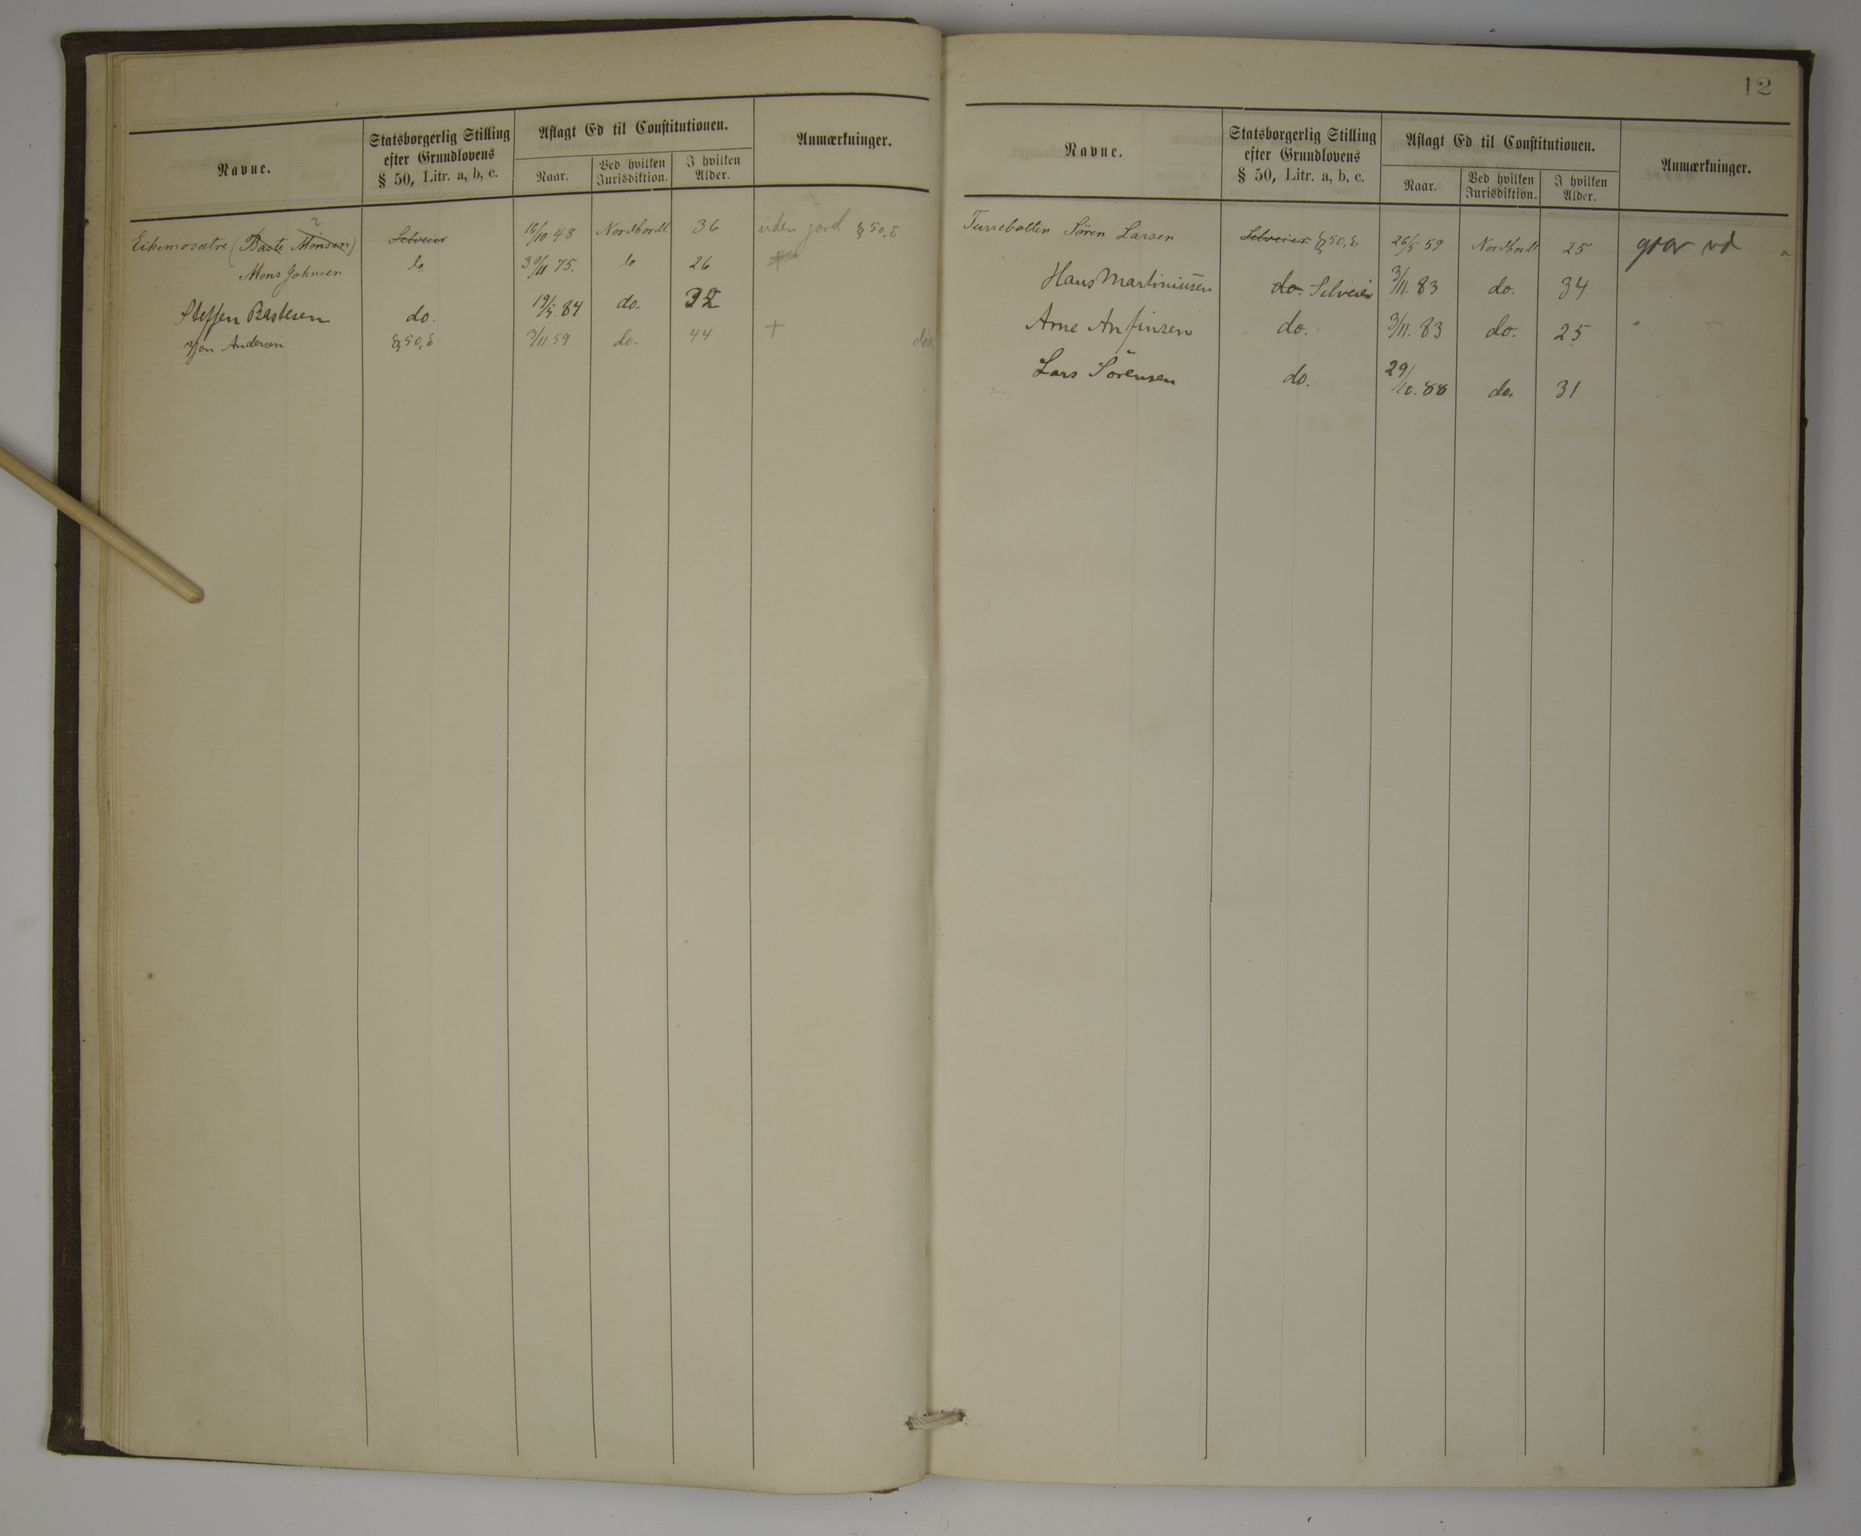 Navne.
Statsborgerlig Stilling
efter Grundlovens
§ 50, Litr. a, b, c.
Aflagt Ed til Constitutionen.
Naar.
Ved hvilken
Jurisdiktion.
I hvilken
Alder.
Anmærkninger.
Eikemosætre (Baste Monsen) Selveier 16/10 48 Nordhordl 36 uden jord § 50, c
Mons Johnsen do 30/11 75. do 26
Steffen Bastesen do. 19/5. 84 do. 32
Jon Andersen § 50, c 3/11. 59 do. 44 +
12
Navne.
Statsborgerlig Stilling
efter Grundlovens
§ 50, Litr. a, b, c.
Aflagt Ed til Constitutionen.
Naar.
Ved hvilken
Jurisdiktion.
I hvilken
Alder.
Anmærkninger.
Turrebotten Sören Larsen Selveier § 50, c 26/5 59 Nordhordl 25
Hans Martiniusen do. Selveier 3/11. 83 do. 34
Arne Anfinsen do. 3/11. 83 do. 25
Lars Sörensen do. 29/10. 88 do. 31